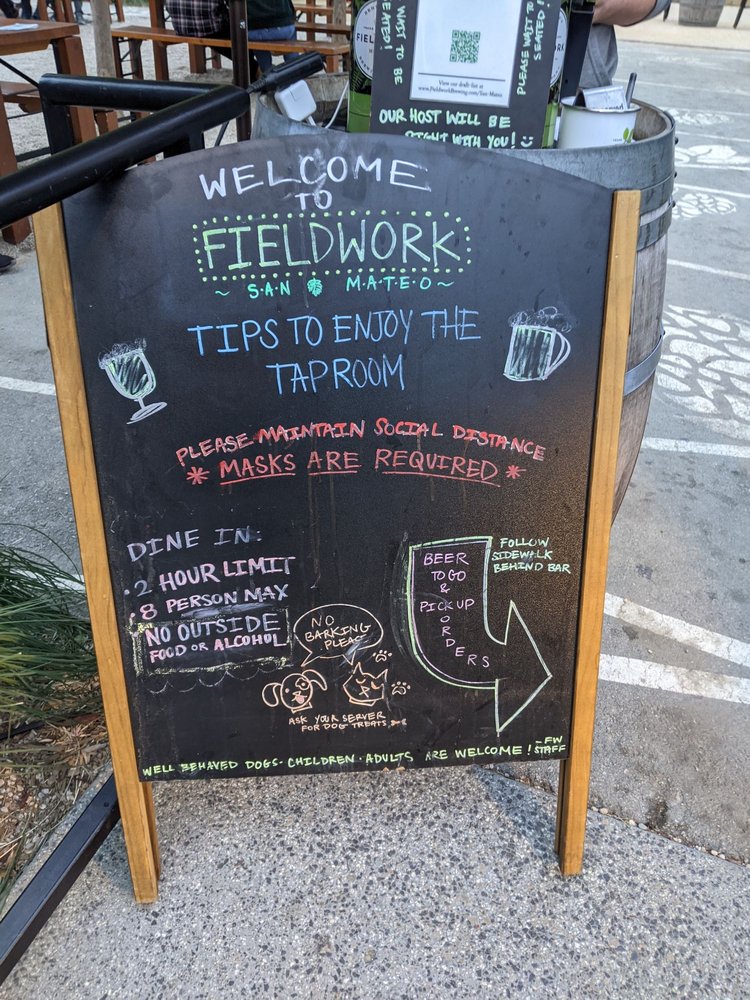 WAIT TO BE
SEATED!
PLEASE WAIT TO
SEATED!
View our draft list at
www.FieldworkBrewing.com/San-Mateo
OUR HOST WILL BE
RIGHT WITH YOU!
WELCOME
TO
FIELDWORK
~ S·A·N M·A·T·E·O ~
TIPS TO ENJOY THE
TAPROOM
PLEASE MAINTAIN SOCIAL DISTANCE
* MASKS ARE REQUIRED *
DINE IN:
· 2 HOUR LIMIT
· 8 PERSON MAX
NO OUTSIDE
FOOD OR ALCOHOL
NO
BARKING
PLEASE
ASK YOUR SERVER
FOR DOG TREATS
BEER
TO GO
&
PICKUP
ORDERS
FOLLOW
SIDEWALK
BEHIND BAR
WELL BEHAVED DOGS · CHILDREN · ADULTS ARE WELCOME! -FW STAFF